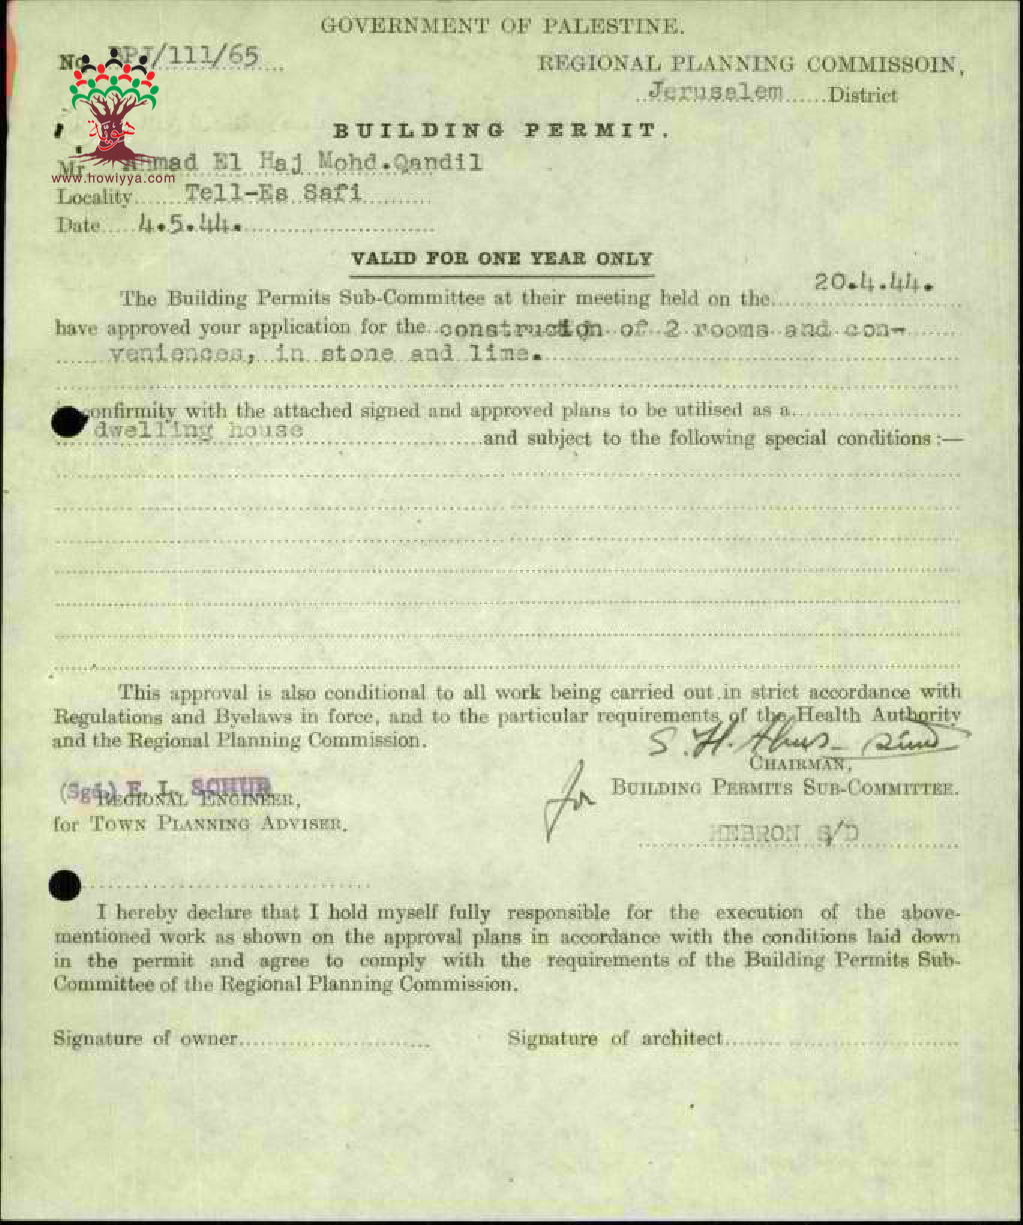 GOVERNMENT OF PALESTINE.
No. BPJ/111/65
REGIONAL PLANNING COMMISSOIN,
Jerusalem District
BUILDING PERMIT.
هوية
Mr. Ahmad El Haj Mohd.Qandil
www.howiyya.com
Locality Tell-Es Safi
Date 4.5.44.
VALID FOR ONE YEAR ONLY
20.4.44.
The Building Permits Sub-Committee at their meeting held on the
have approved your application for the construction of 2 rooms and con-
veniences, in stone and lime.
confirmity with the attached signed and approved plans to be utilised as a
dwelling house and subject to the following special conditions :—
This approval is also conditional to all work being carried out in strict accordance with
Regulations and Byelaws in force, and to the particular requirements of the Health Authority
and the Regional Planning Commission.
CHAIRMAN,
(Sgd.) E. L.
REGIONAL ENGINEER,
for BUILDING PERMITS SUB-COMMITTEE.
for TOWN PLANNING ADVISER.
HEBRON S/D
I hereby declare that I hold myself fully responsible for the execution of the above-
mentioned work as shown on the approval plans in accordance with the conditions laid down
in the permit and agree to comply with the requirements of the Building Permits Sub-
Committee of the Regional Planning Commission.
Signature of owner
Signature of architect